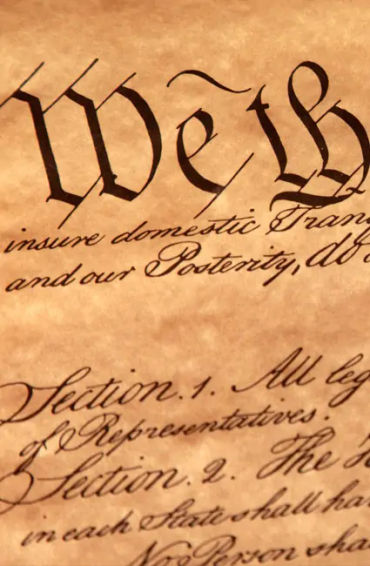 We th
insure domestic Tran
and our Posterity, do
Section. 1. All leg
of Representatives.
Section. 2. The H
in each State shall ha
No Person sha